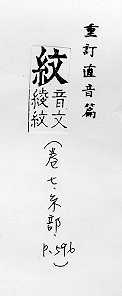 重訂直音篇
紋
音文
綾紋
(卷七·糸部·p.596)